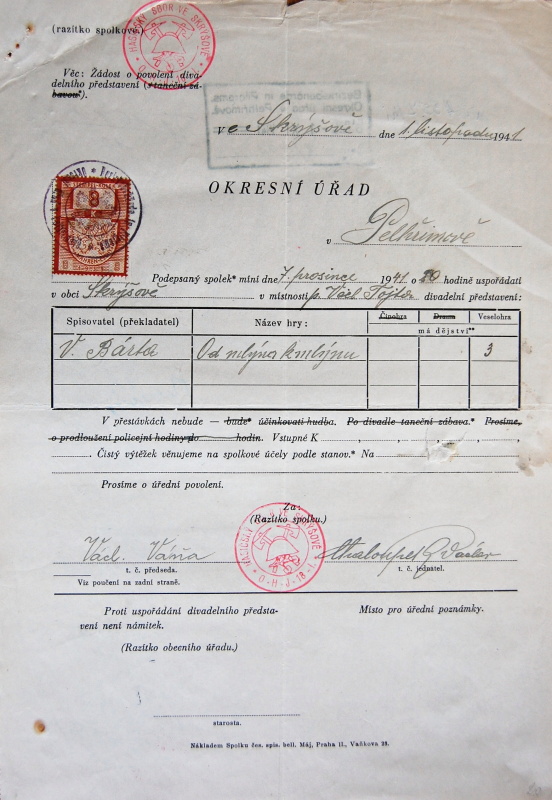 HASIČSKÝ SBOR VE SKRÝŠOVĚ
(razítko spolkové.)
Věc: Žádost o povolení diva-
delního představení (*taneční zá-
bavou*).
V e Skrýšově dne 1. listopadu 1941
OKRESNÍ ÚŘAD
v Pelhřimově
8
K
Podepsaný spolek* míní dne 7. prosince 1941 o 20 hodině uspořádati
v obci Skrýšově v místnosti p. Václ. divadelní představení:
Spisovatel (překladatel) Název hry: Činohra Drama Veselohra
má dějství**
V. Bárta Od mlýna k mlýnu 3
V přestávkách nebude — bude* účinkovati hudba. Po divadle taneční zábava.* Prosíme,
o prodloužení policejní hodiny do hodin. Vstupné K , , , , ,
. Čistý výtěžek věnujeme na spolkové účely podle stanov.* Na
Prosíme o úřední povolení.
Za:
(Razítko spolku.)
HASIČSKÝ SBOR VE SKRÝŠOVĚ
O-H-J-18-
Václ. Váňa
t. č. předseda. t. č. jednatel.
Viz poučení na zadní straně.
Proti uspořádání divadelního předsta-
vení není námitek.
Místo pro úřední poznámky.
(Razítko obecního úřadu.)
starosta.
Nákladem Spolku čes. spis. bell. Máj, Praha II., Vaňkova 28.